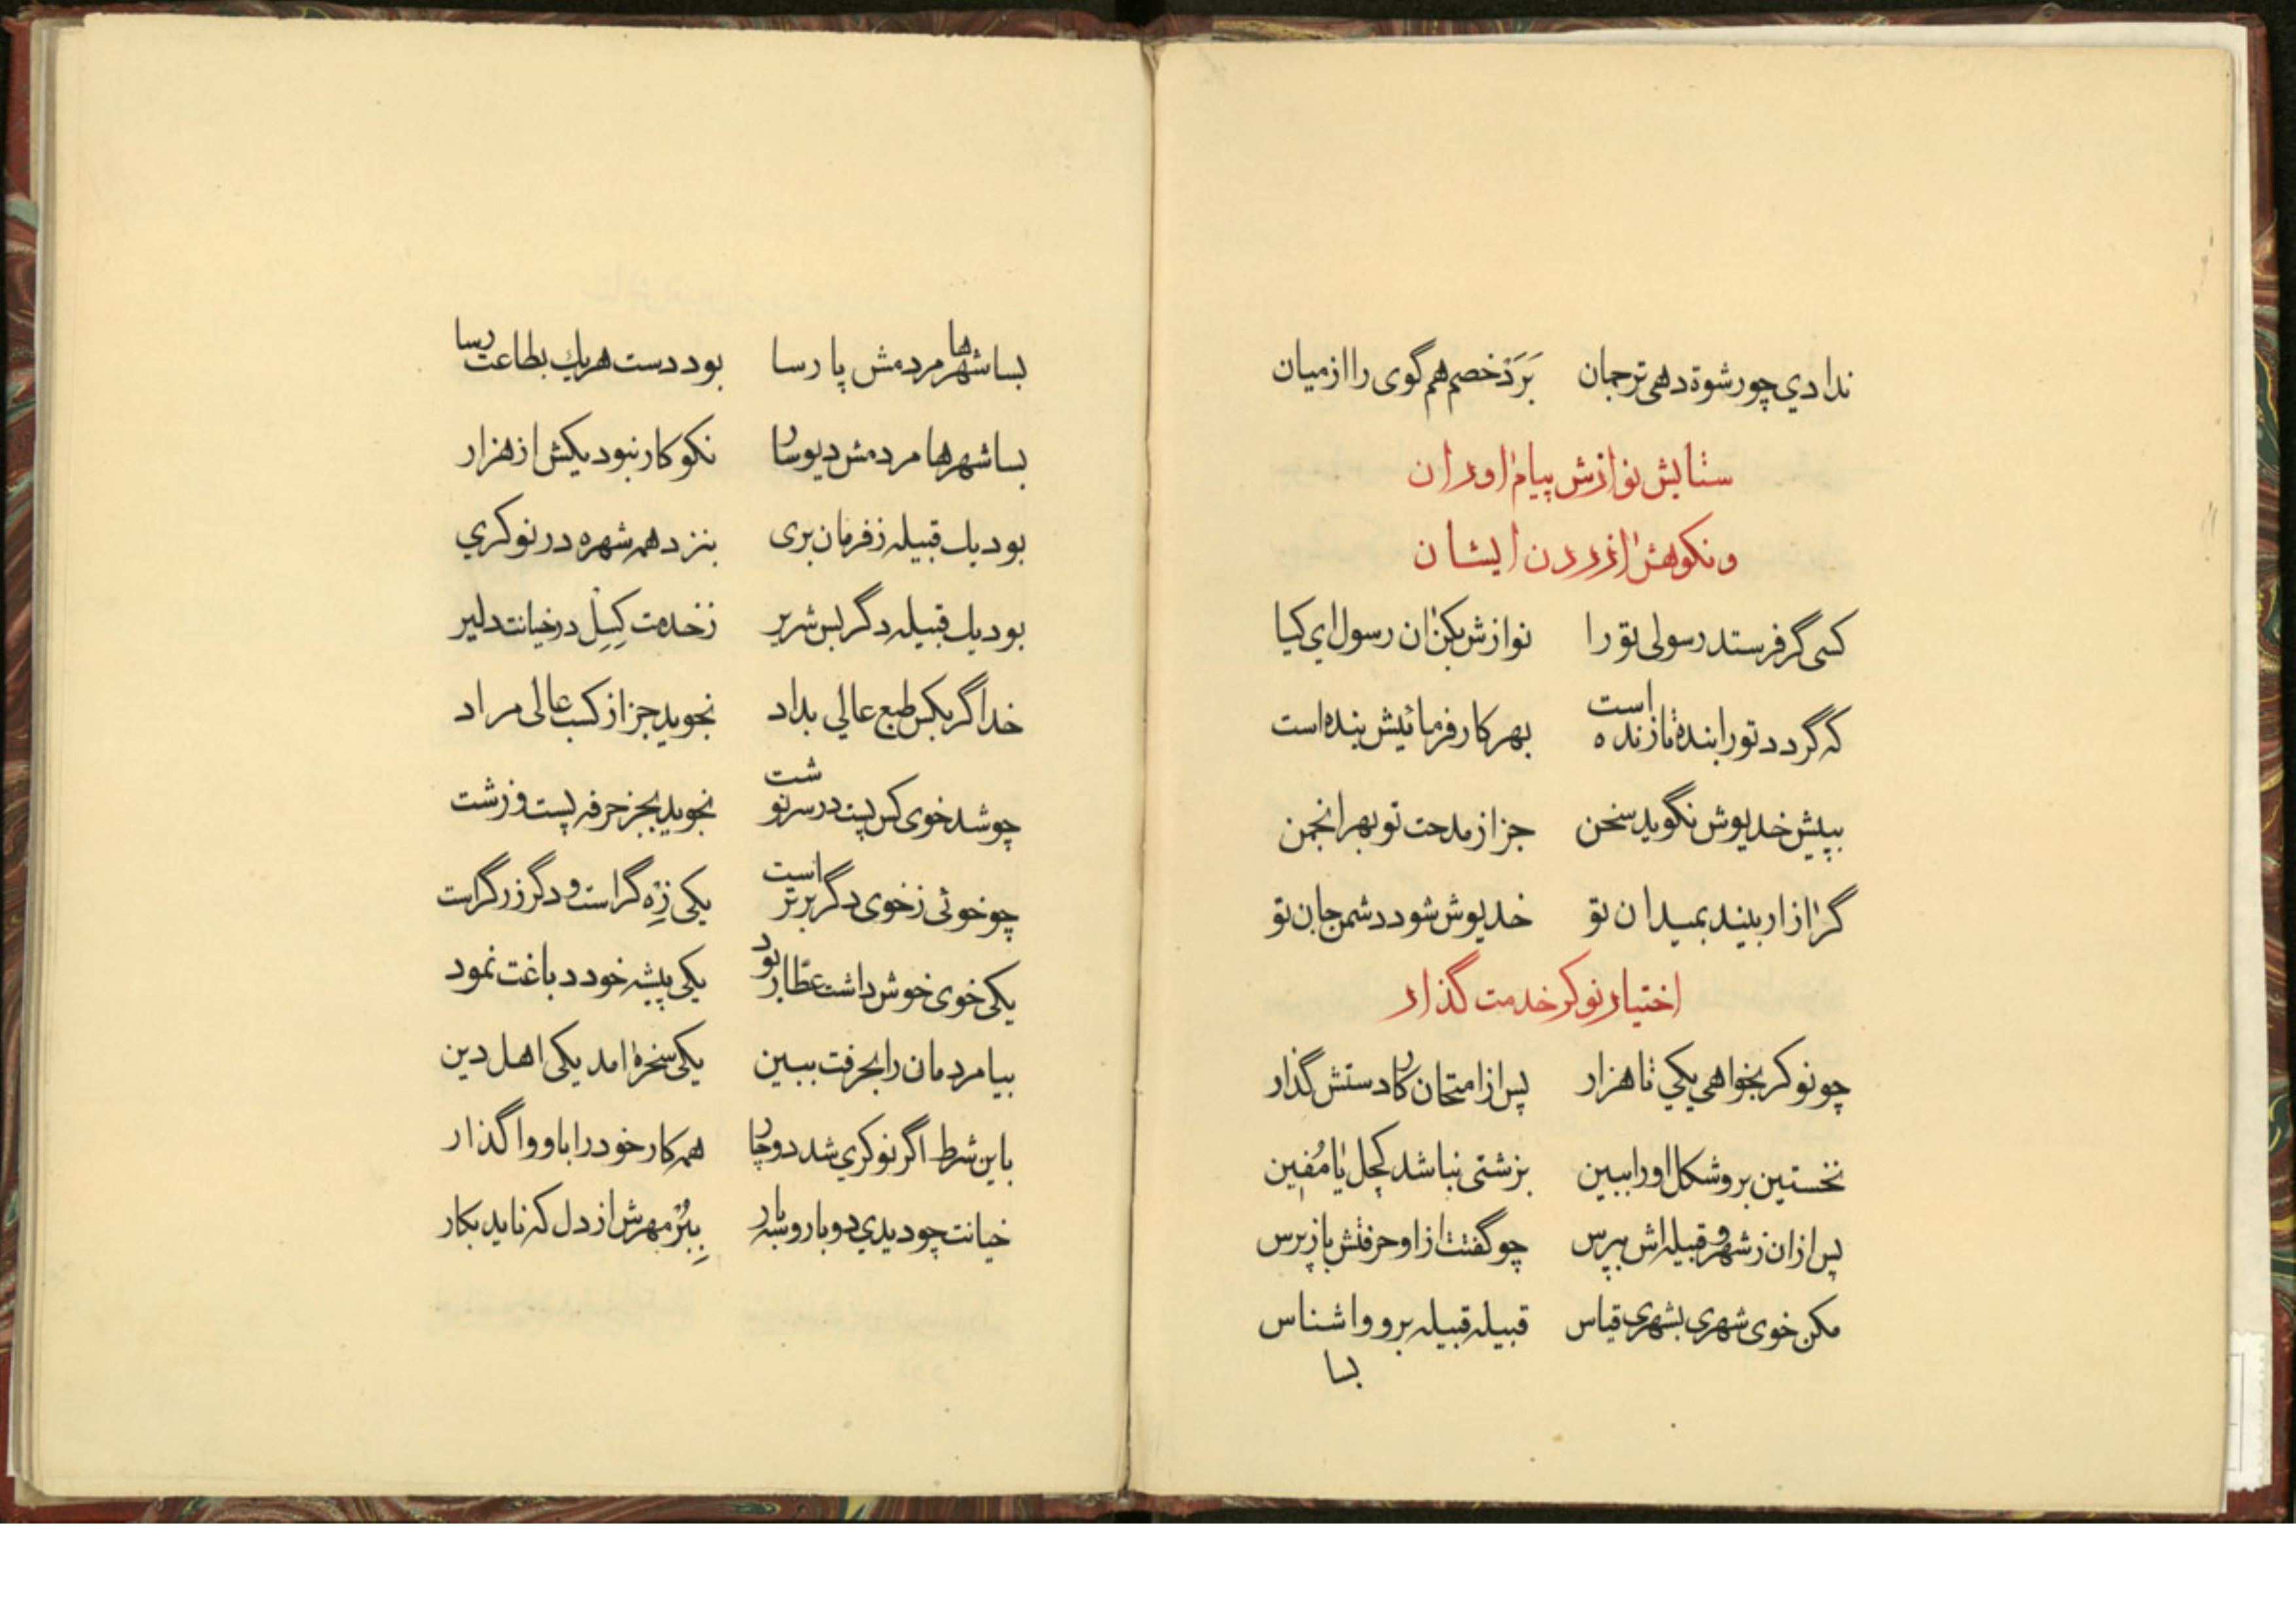 ندادي چو رشوة دهی ترجمان برَدْ خصم هم گوی را از میان
ستایش نوازش پیام اوران
و نکوهش ازردن ایشان
کسی گر فرستد رسولی تو را نوازش بکن ان رسول ای کیا
که گردد تو را بنده تا زنده است بهر کار فرمائیش بنده است
بپیش خدیوش نگوید سخن جز از مدحت تو بهر انجمن
گر ازار بیند بمیدان تو خدیوش شود دشمن جان تو
اختیار نوکر خدمت گذار
چو نوکر بخواهی یکي تا هزار پس از امتحان کار دستش گذار
نخستین برو شکل او را ببین بزشتی نباشد کچل یا مُفین
پس از ان ز شهر و قبیله اش بپرس چو گفتت از او حرفتش باز پرس
مکن خوی شهري بشهري قیاس قبیله قبیله برو وا شناس
بسا
بسا شهرها مردمش پارسا بود دست هر یك بطاعت رسا
بسا شهرها مردمش دیوسار نکو کار نبود یکش از هزار
بود یك قبیله ز فرمان بری بنزد همه شهره در نوکري
بود یك قبیله دگر بس شریر ز خدمت کِسِل در خیانت دلیر
خدا گر بکس طبع عالي بداد نجوید جز از کسب عالی مراد
چو شد خوی کس پست در سرنوشت نجوید بجز حرفه پست و زشت
چو خوئی ز خوی دگر برتر است یکی زِرْه گر است و دگر زرگر است
یکی خوی خوش داشت عطّار بود یکی پیشه خود دباغت نمود
بیا مردمان را بحرفت ببین یکی سخره امد یکی اهل دین
باین شرط اگر نوکري شد دوچار همه کار خود را باو وا گذار
خیانت چو دیدي دو بار و سه بار بِبُرْ مهرش از دل که ناید بکار